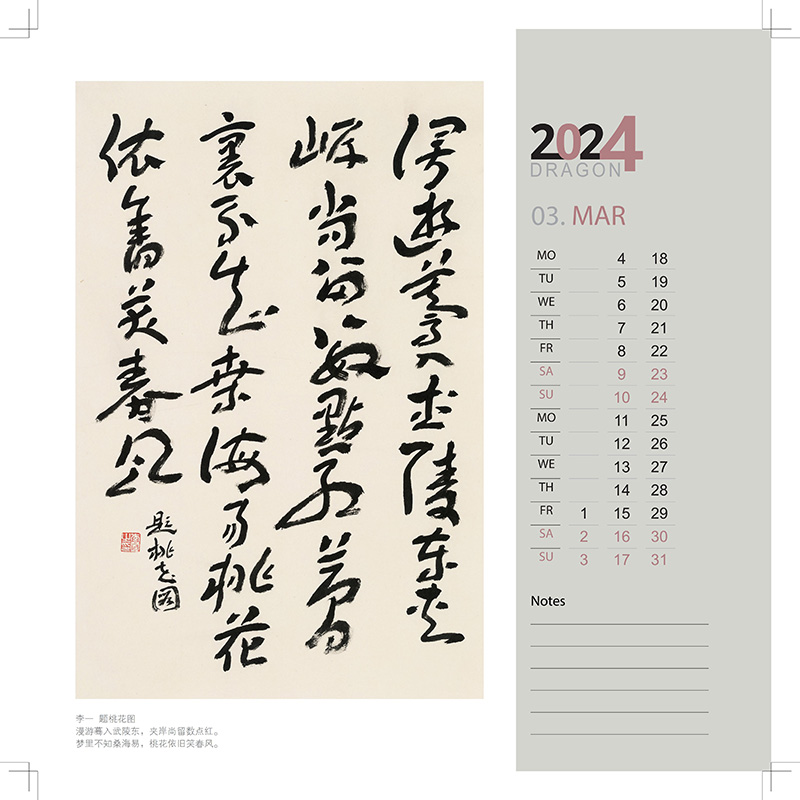 漫遊驀入武陵東夾
岸尚留數點紅夢
裏不知桑海易桃花
依舊笑春风
題桃花圖
李一 题桃花图
漫游蓦入武陵东，夹岸尚留数点红。
梦里不知桑海易，桃花依旧笑春风。
2024
DRAGON
03. MAR
MO 4 18
TU 5 19
WE 6 20
TH 7 21
FR 8 22
SA 9 23
SU 10 24
MO 11 25
TU 12 26
WE 13 27
TH 14 28
FR 1 15 29
SA 2 16 30
SU 3 17 31
Notes